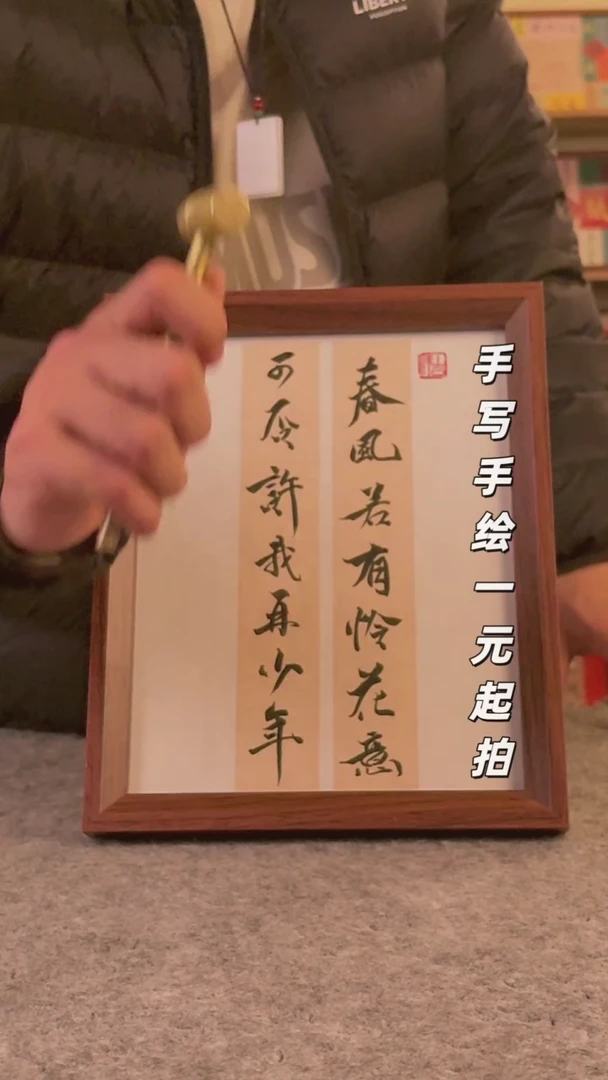 LIBERT
手写手绘一元起拍
春風若有憐花意
可否許我再少年